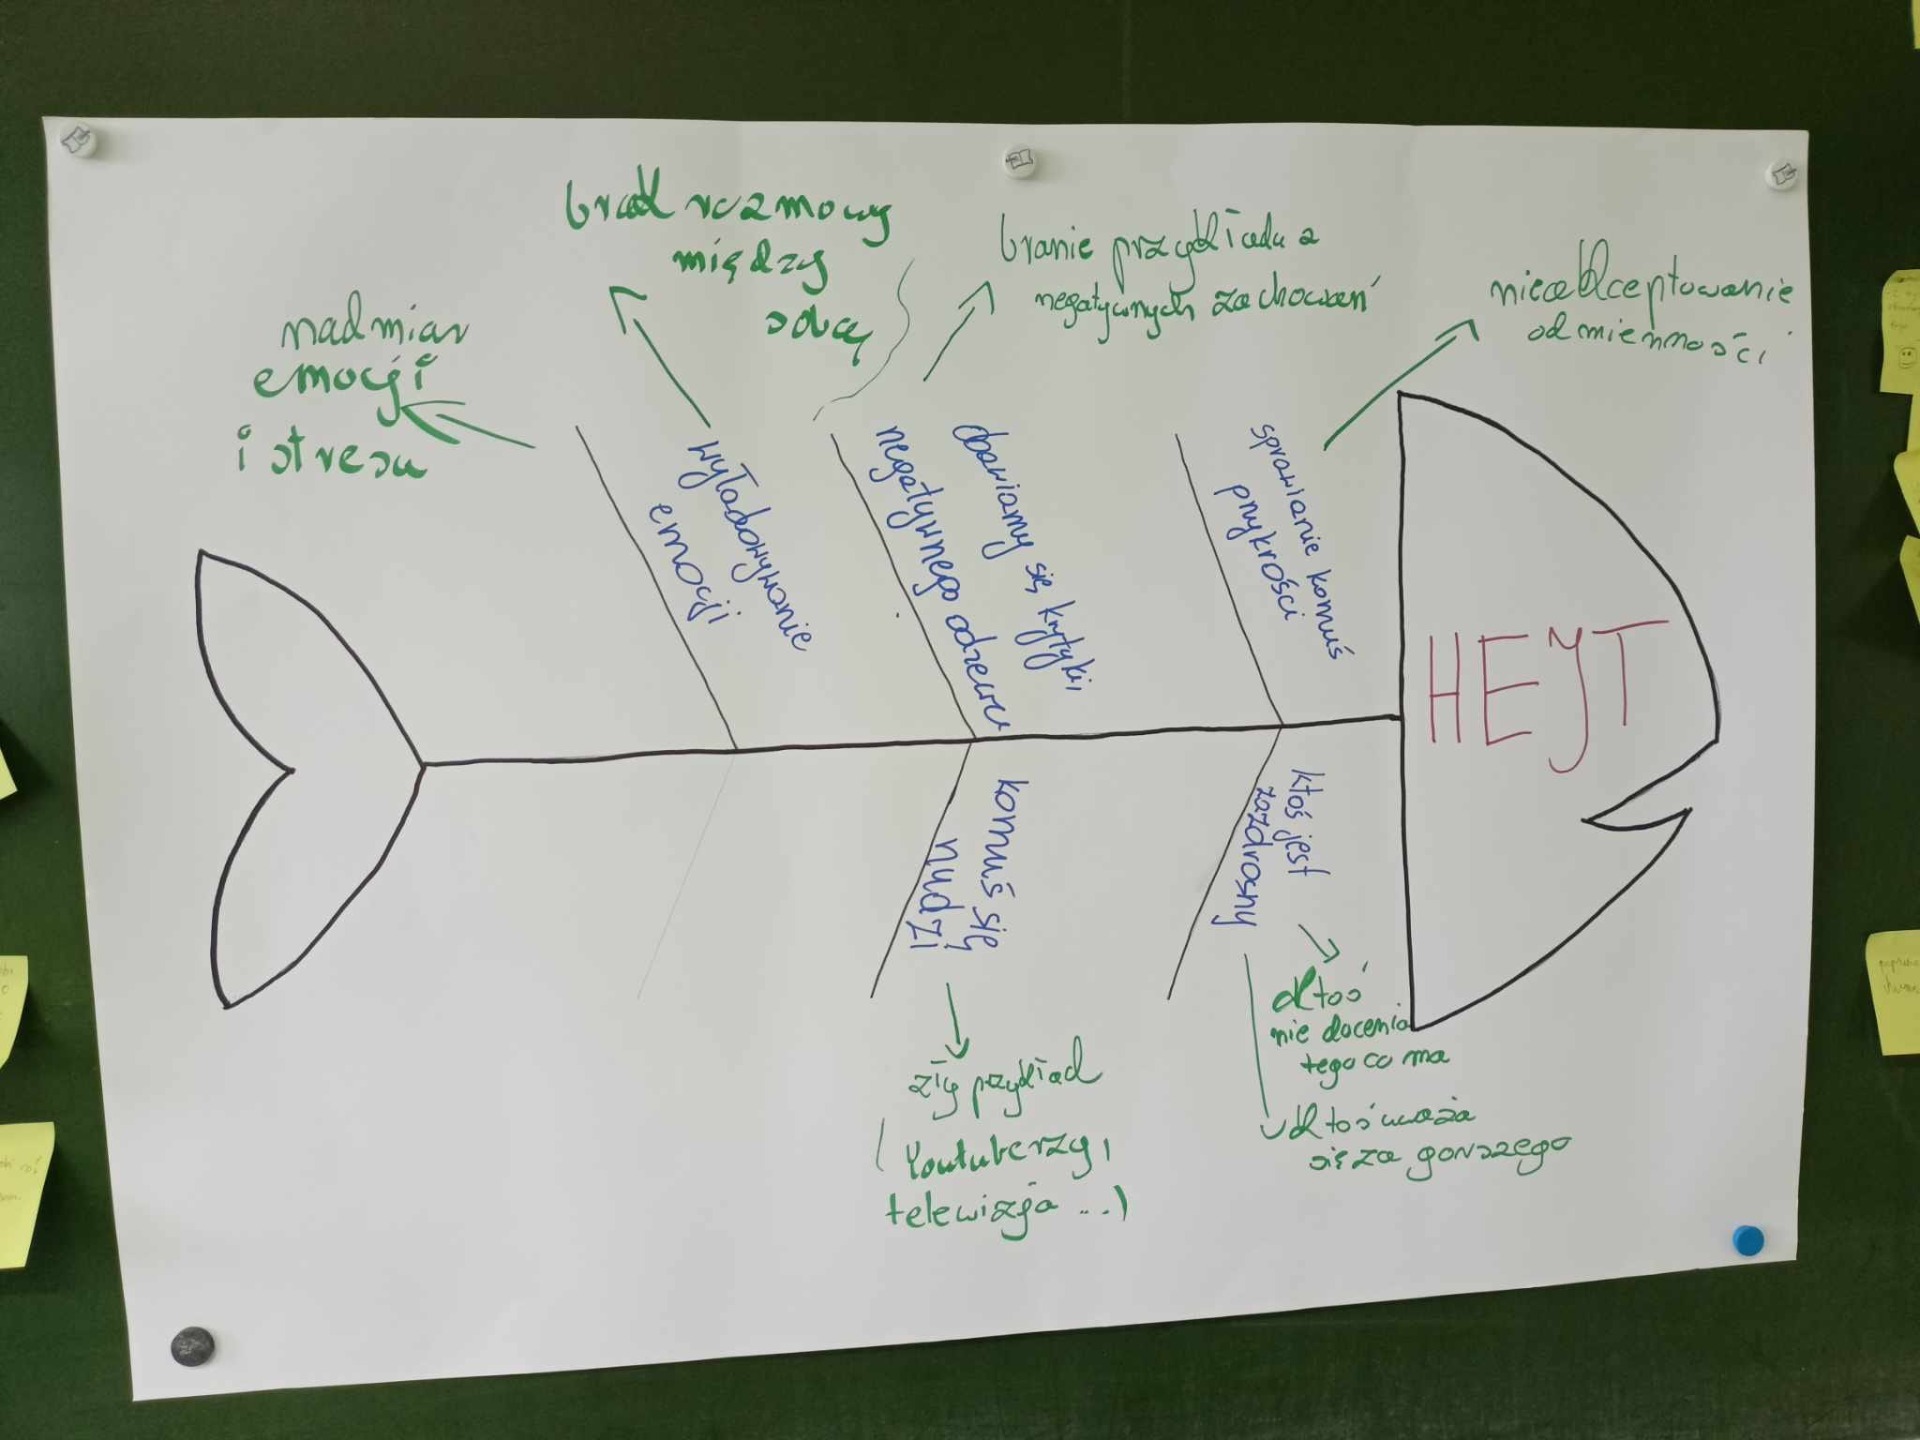 brak rozmowy
między
sobą
branie przykładu z
negatywnych zachowań
nieakceptowanie
odmienności
nadmiar
emocji
i stresu
wyładowywanie
emocji
obawiamy się krytyki,
negatywnego odzewu
sprawianie komuś
przykrości
HEJT
komuś się
nudzi
ktoś jest
zazdrosny
ktoś
nie docenia
tego co ma
ktoś uważa
się za gorszego
zły przykład
(Youtuberzy,
telewizja ...)